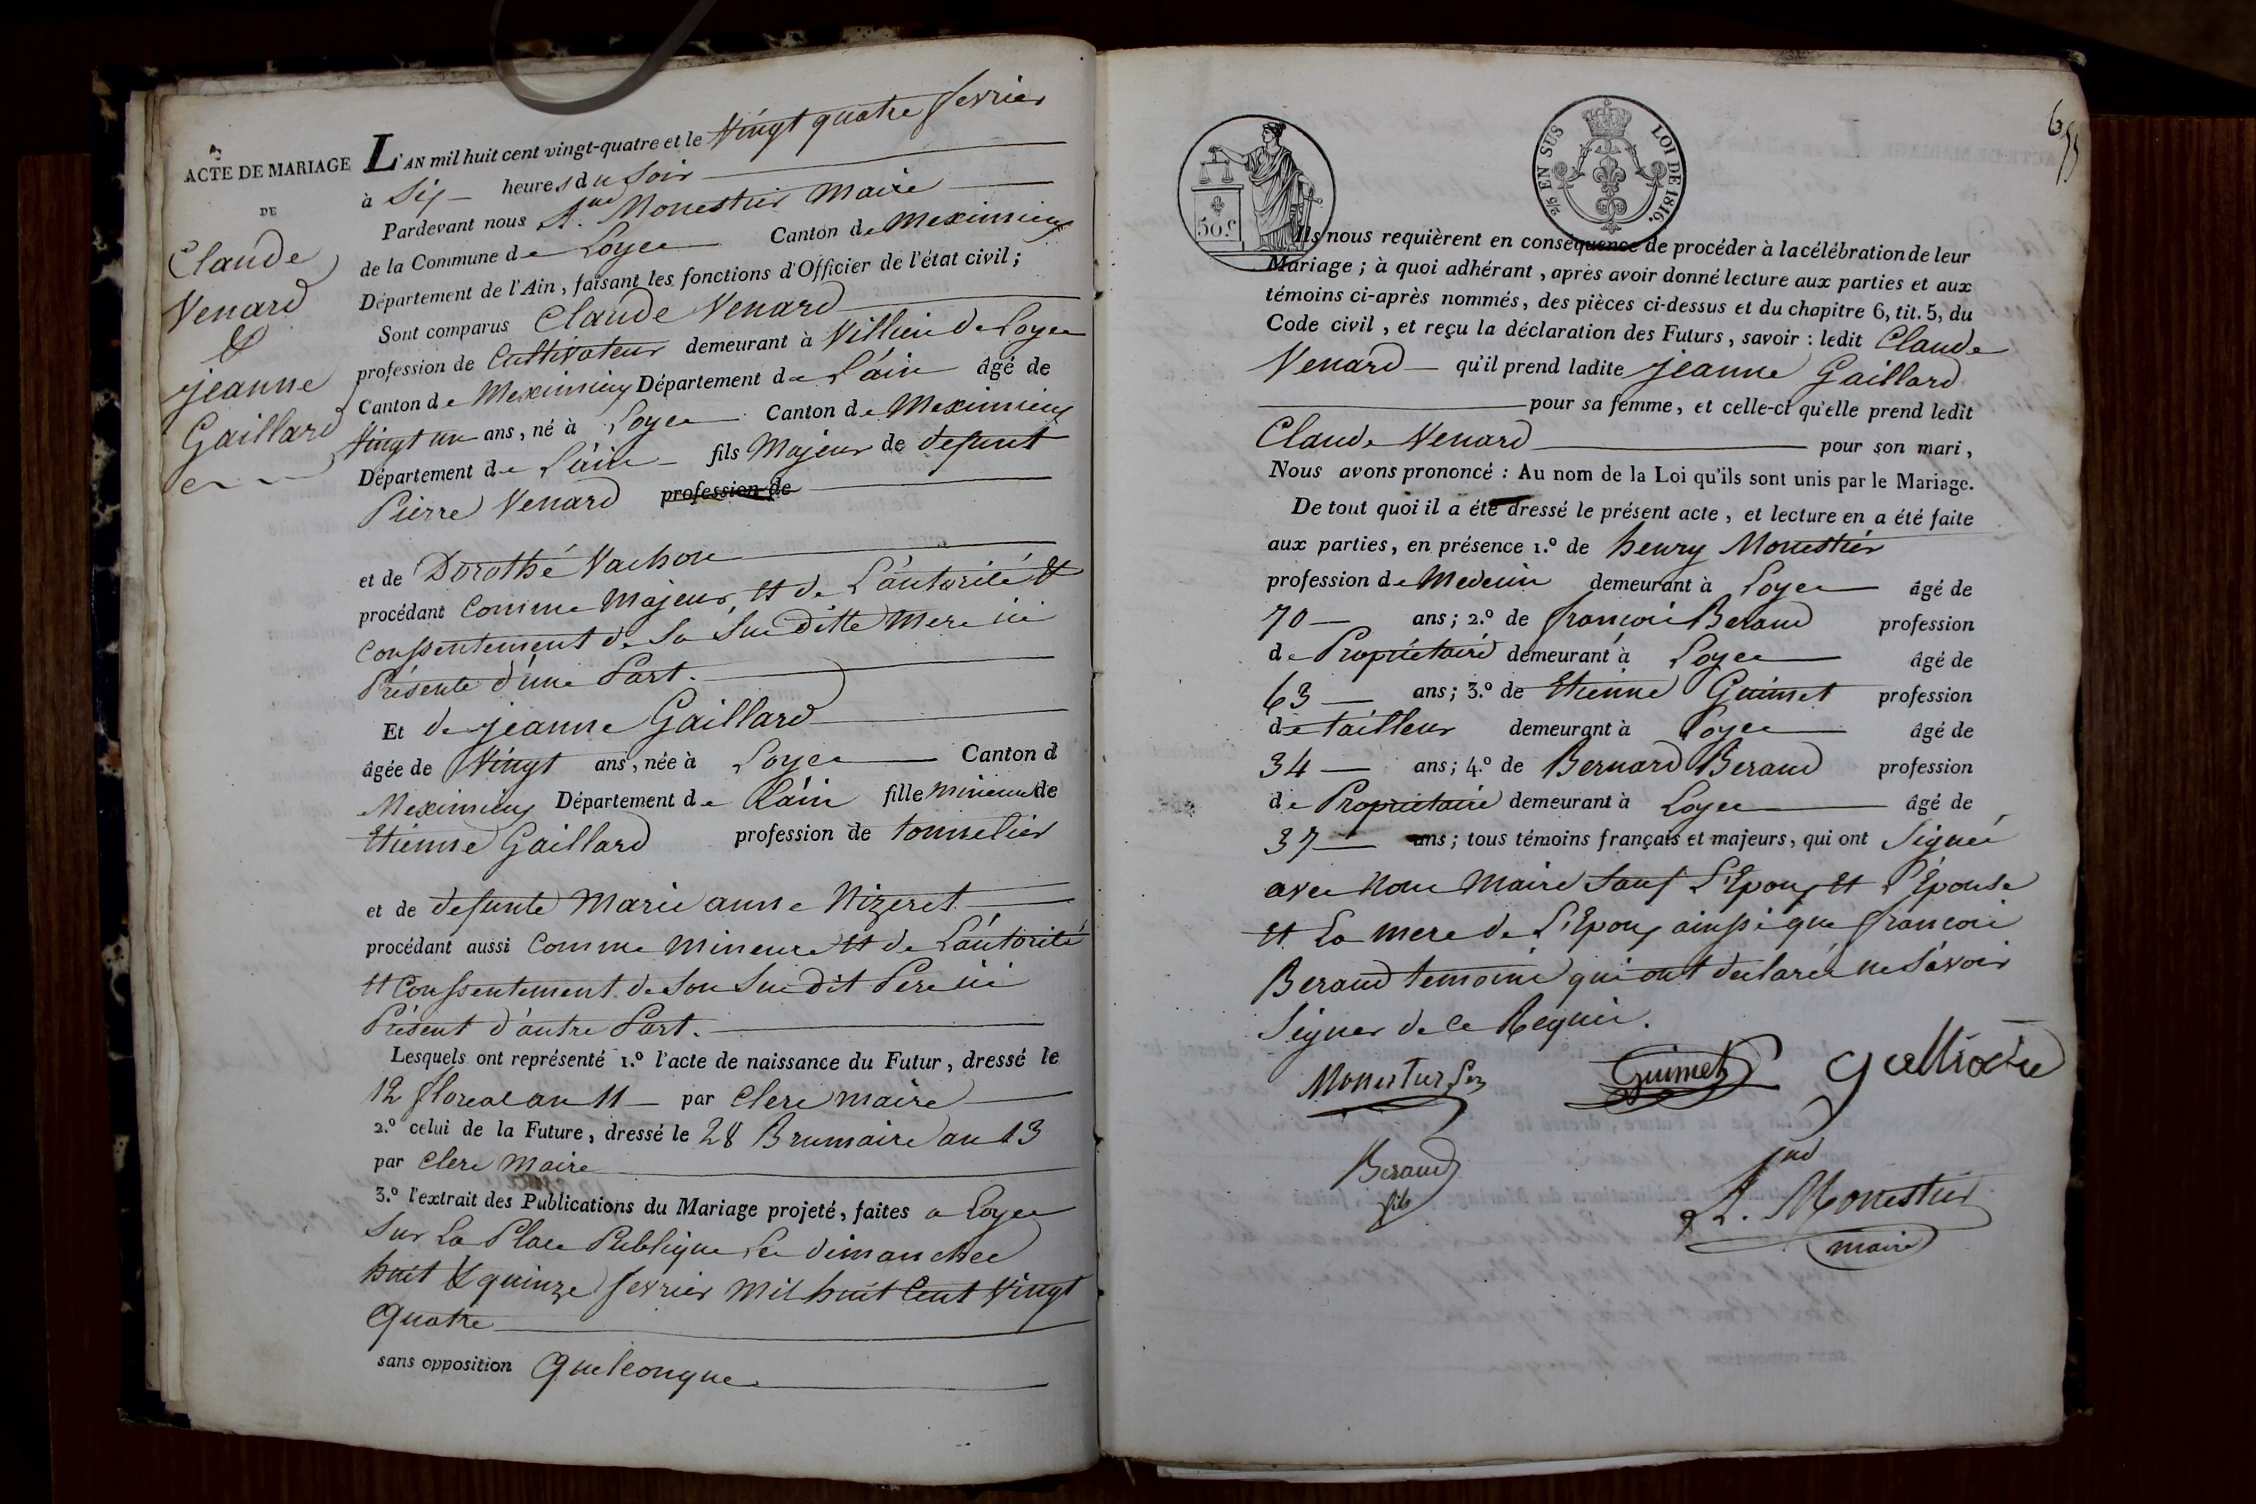 ACTE DE MARIAGE
DE
Claude
Venard
&
jeanne
Gaillard
L'AN mil huit cent vingt-quatre et le Vingt quatre fevrier
à Six heures du Soir
Pardevant nous Monestier Maire
de la Commune de Loyes Canton de Meximieux
Département de l'Ain, faisant les fonctions d'Officier de l'état civil;
Sont comparus Claude Venard
profession de Cultivateur demeurant à Villieu de Loyes
Canton de Meximieux Département de L'ain âgé de
Vingt un ans, né à Loyes Canton de Meximieux
Département de L'ain fils Majeur de defunt
Pierre Venard profession de
et de Dorothé Vachon
procédant Comme Majeur, et de L'autorité et
Conssentement de Sa Susditte Mere ici
Présente d'une Part.
Et de jeanne Gaillard
âgée de Vingt ans, née à Loyes Canton d
Meximieux Département de L'ain fille mineure de
Etienne Gaillard profession de tonnelier
et de defunte Marie anne Nizeret
procédant aussi Comme Mineure et de L'autorité
et Conssentement de Son Susdit Pere ici
Présent d'autre Part.
Lesquels ont représenté 1.º l'acte de naissance du Futur, dressé le
12 floreal an 11 par Clerc maire
2.º celui de la Future, dressé le 28 Brumaire an 13
par Clerc Maire
3.º l'extrait des Publications du Mariage projeté, faites a Loyes
Sur La Place Publique Les dimanches
huit & quinze fevrier Mil huit Cent Vingt
Quatre
sans opposition Quelconque
50 c
2/5 EN SUS
LOI DE 1816.
6
Ils nous requièrent en conséquence de procéder à la célébration de leur
Mariage; à quoi adhérant, après avoir donné lecture aux parties et aux
témoins ci-après nommés, des pièces ci-dessus et du chapitre 6, tit. 5, du
Code civil, et reçu la déclaration des Futurs, savoir : ledit Claude
Venard qu'il prend ladite jeanne Gaillard
pour sa femme, et celle-ci qu'elle prend ledit
Claude Venard pour son mari,
Nous avons prononcé : Au nom de la Loi qu'ils sont unis par le Mariage.
De tout quoi il a été dressé le présent acte, et lecture en a été faite
aux parties, en présence 1.º de henry Monestier
profession de Medecin demeurant à Loyes âgé de
70 ans; 2.º de francois Beraud profession
de Propriétaire demeurant à Loyes âgé de
63 ans; 3.º de Etienne Guimet profession
de tailleur demeurant à Loyes âgé de
34 ans; 4.º de Bernard Beraud profession
de Proprietaire demeurant à Loyes âgé de
37 ans; tous témoins français et majeurs, qui ont Signé
avec Nous Maire Sauf L'Epoux et L'Epouse
et La mere de L'Epoux ainssi que francois
Beraud temoins qui ont declarés ne Savoir
Signer de ce Requis.
Monestier
Guimet
Beraud
fils
A. Monestier
maire